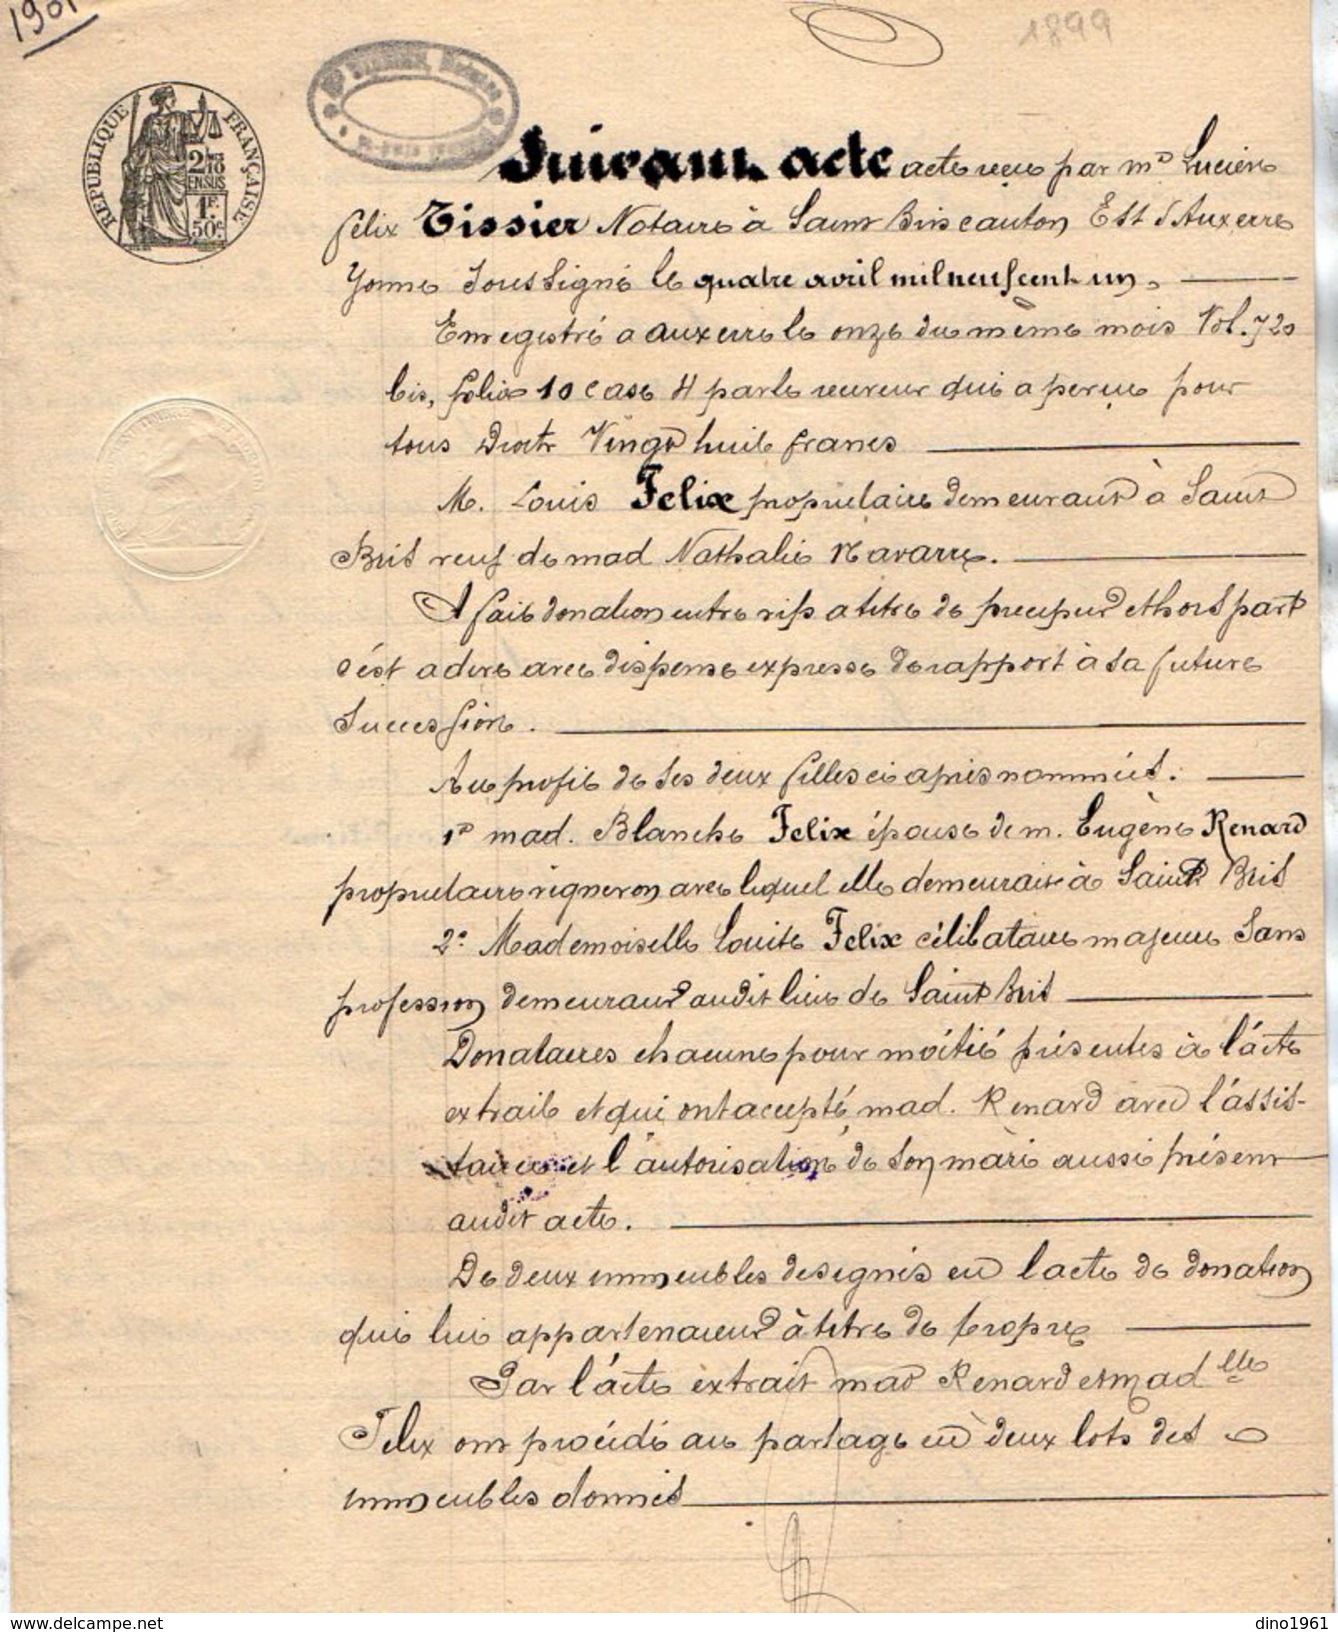 1901
1899
RÉPUBLIQUE FRANÇAISE
2/10ES
EN SUS
1F.
50c
Suivant acte acte reçu par Me Lucien
félix Tissier Notaire à Saint Bris canton Est d'Auxerre
Yonne soussigné le quatre avril mil neuf cent un.
Enregistré a auxerre le onze du même mois Vol. 720
bis, folio 10 case 4 par le receveur qui a perçu pour
tous Droits Vingt huit francs
M. Louis Felix propriétaire demeurant à Saint
Bris veuf de mad Nathalie Navarre.
A fait donation entre vifs a titre de preciput et hors part
c'ést a dire avec dispense expresse de rapport à sa future
Succession.
Au profit de ses deux filles ci après nommées.
1e mad. Blanche Felix épouse de m. Eugène Renard
propriétaire vigneron avec lequel elle demeurait à Saint Bris
2e Mademoiselle Louise Felix célibataire majeure sans
profession demeurant audit lieu de Saint Bris
Donataires chacune pour moitié présentes à l'ácte
extrait et qui ont accepté, mad. Renard avec l'ássis-
tance et l'autorisation de son mari aussi présent
audit acte.
De deux immeubles designés en l'acte de donation
qui lui appartenaient à titre de propre
Par l'ácte extrait mad Renard et Mad elle
Felix ont procédé au partage en deux lots des
immeubles donnés
www.delcampe.net
dino1961